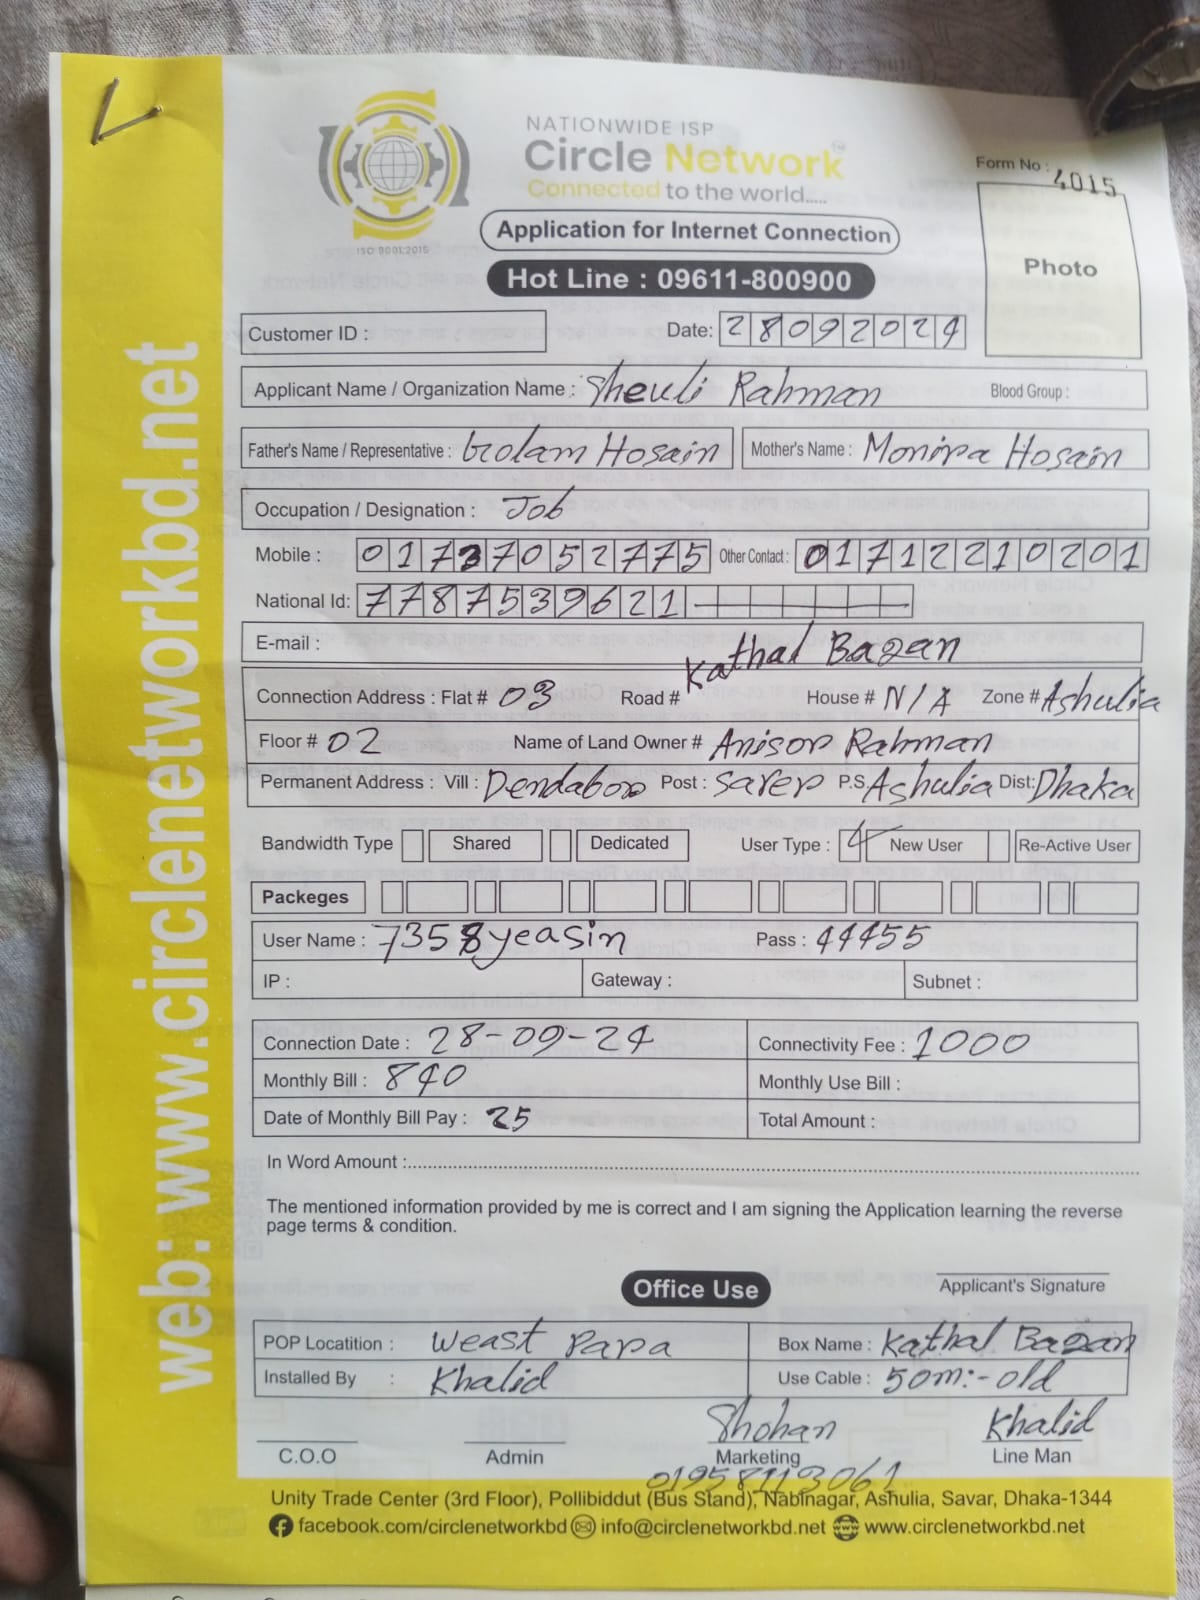 NATIONWIDE ISP
Circle Network
Connected to the world.....
ISO 9001:2015
Form No : 4015
Application for Internet Connection
Photo
Hot Line : 09611-800900
Customer ID :
Date: 28092024
Applicant Name / Organization Name : Sheuli Rahman Blood Group :
Father's Name / Representative : Golam Hosain Mother's Name : Monira Hosain
Occupation / Designation : Job
Mobile : 01737052775 Other Contact : 01712210201
National Id: 7787539621
E-mail :
Kathal Bagan
Connection Address : Flat # 03 Road # House # N/A Zone # Ashulia
Floor # 02 Name of Land Owner # Anisor Rahman
Permanent Address : Vill : Dendabor Post : Saver P.S. Ashulia Dist: Dhaka
Bandwidth Type Shared Dedicated User Type : New User Re-Active User
Packeges
User Name : 7358yeasin Pass : 44455
IP : Gateway : Subnet :
Connection Date : 28-09-24 Connectivity Fee : 1000
Monthly Bill : 840 Monthly Use Bill :
Date of Monthly Bill Pay : 25 Total Amount :
In Word Amount :
The mentioned information provided by me is correct and I am signing the Application learning the reverse
page terms & condition.
Applicant's Signature
Office Use
POP Locatition : Weast Para Box Name : Kathal Bagan
Installed By : Khalid Use Cable : 50m:-old
Shohan Khalid
C.O.O Admin Marketing Line Man
01958113061
Unity Trade Center (3rd Floor), Pollibiddut (Bus Stand), Nabinagar, Ashulia, Savar, Dhaka-1344
facebook.com/circlenetworkbd info@circlenetworkbd.net www.circlenetworkbd.net
web: www.circlenetworkbd.net